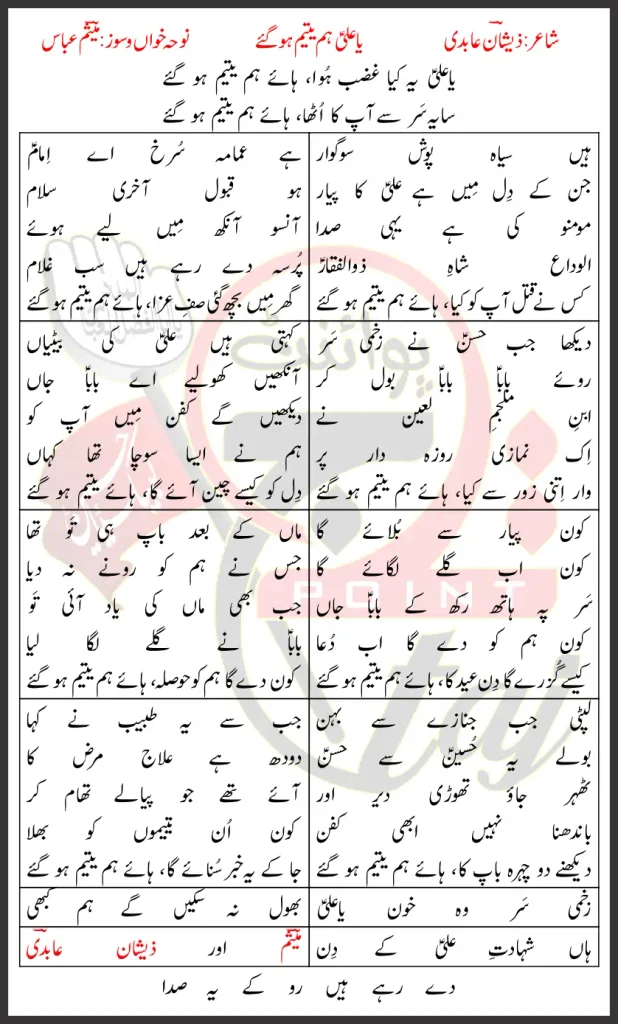 شاعر: ذیشان عابدی یا علیؑ ہم یتیم ہو گئے نوحہ خواں و سوز: میثم عباس
یا علیؑ یہ کیا غضب ہُوا، ہائے ہم یتیم ہو گئے
سایہ سَر سے آپ کا اُٹھا، ہائے ہم یتیم ہو گئے
ہیں سیاہ پوش سوگوار
جن کے دِل مِیں ہے علیؑ کا پیار
مومنو کی ہے یہی صدا
الوداع شاہِ ذوالفقارؑ
کس نے قتل آپ کو کیا، ہائے ہم یتیم ہو گئے
ہے عمامہ سُرخ اے اِمامؑ
ہو قبول آخری سلام
آنسو آنکھ مِیں لیے ہوئے
پُرسہ دے رہے ہیں سب غلام
گھر مِیں بچھ گئی صفِ عزا، ہائے ہم یتیم ہو گئے
دیکھا جب حسنؑ نے زخمی سَر
روئے باباؑ باباؑ بول کر
ابنِ ملجمِ لعین نے
اِک نمازی روزہ دار پر
وار اِتنی زور سے کیا، ہائے ہم یتیم ہو گئے
کہتی ہیں علیؑ کی بیٹیاں
آنکھیں کھولیے اے باباؑ جاں
دیکھیں گے کفن مِیں آپ کو
ہم نے ایسا سوچا تھا کہاں
دِل کو کیسے چین آئے گا، ہائے ہم یتیم ہو گئے
کون پیار سے بُلائے گا
کون اب گلے لگائے گا
سَر پہ ہاتھ رکھ کے باباؑ جاں
کون ہم کو دے گا اب دُعا
کیسے گُزرے گا دِن عید کا، ہائے ہم یتیم ہو گئے
ماں کے بعد باپ ہی تَو تھا
جس نے ہم کو رونے نہ دیا
جب بھی ماں کی یاد آئی تَو
باباؑ نے گلے لگا لیا
کون دے گا ہم کو حوصلہ، ہائے ہم یتیم ہو گئے
لپٹی جب جنازے سے بہن
بولے یہ حُسینؑ سے حسنؑ
ٹھہر جاؤ تھوڑی دیر اور
باندھنا نہیں ابھی کفن
دیکھنے دو چہرہ باپ کا، ہائے ہم یتیم ہو گئے
جب سے یہ طبیب نے کہا
دودھ ہے علاج مرض کا
آئے تھے جو پیالے تھام کر
کون اُن یتیموں کو بھلا
جا کے یہ خبر سُنائے گا، ہائے ہم یتیم ہو گئے
زخمی سَر وہ خون یا علیؑ
بھول نہ سکیں گے ہم کبھی
ہاں شہادتِ علیؑ کے دِن
میثم اور ذیشان عابدی
دے رہے ہیں رو کے یہ صدا
پوائنٹ
POINT